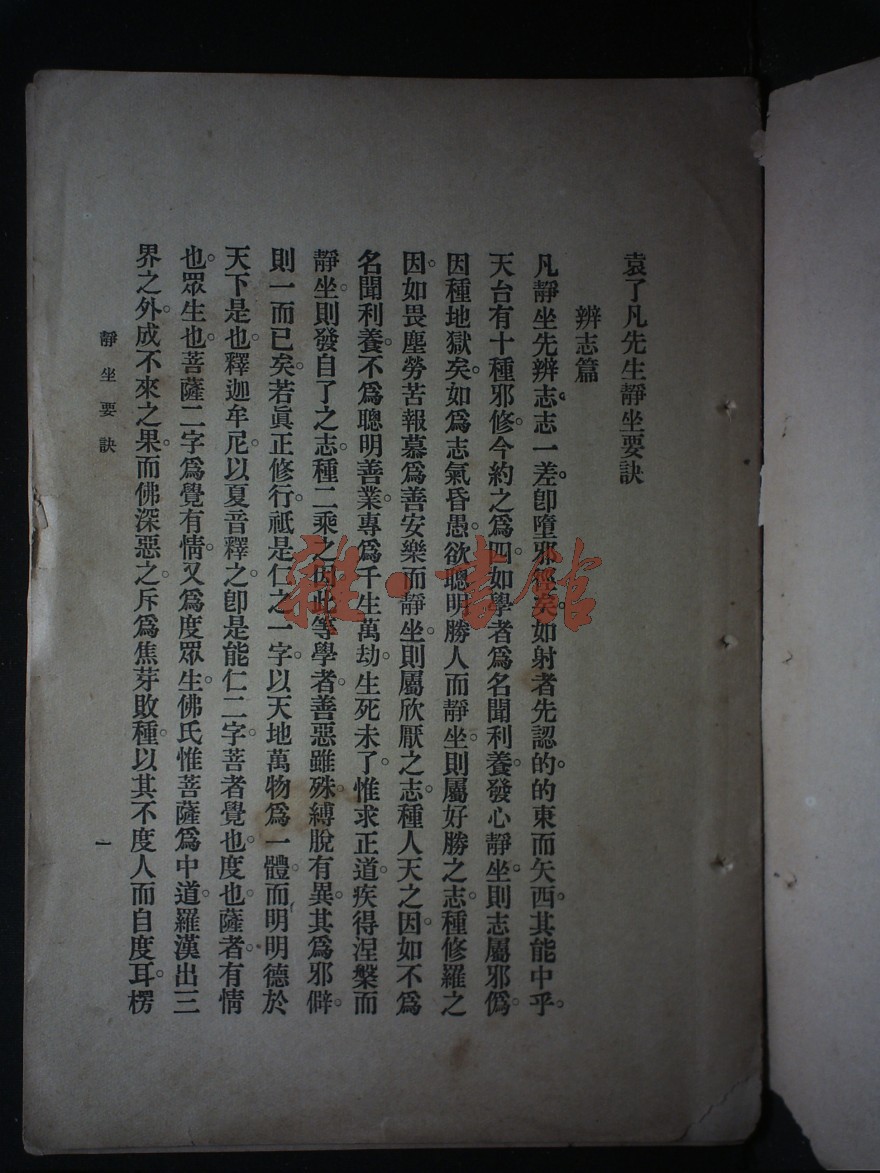 袁了凡先生靜坐要訣
辨志篇
凡靜坐先辨志。志一差。卽墮邪徑矣。如射者先認的。的東而矢西。其能中乎。
天台有十種邪修。今約之爲四。如學者爲名聞利養。發心靜坐。則志屬邪僞。
因種地獄矣。如爲志氣昏愚。欲聰明勝人而靜坐。則屬好勝之志。種修羅之
因。如畏塵勞苦報。慕爲善安樂而靜坐。則屬欣厭之志。種人天之因。如不爲
名聞利養。不爲聰明善業。專爲千生萬劫。生死未了。惟求正道。疾得涅槃而
靜坐。則發自了之志。種二乘之因。此等學者。善惡雖殊。縛脫有異。其爲邪僻。
則一而已矣。若眞正修行。祗是仁之一字。以天地萬物爲一體。而明明德於
天下是也。釋迦牟尼。以夏音釋之。卽是能仁二字。菩者覺也。度也。薩者。有情
也。眾生也。菩薩二字。爲覺有情。又爲度眾生。佛氏惟菩薩爲中道。羅漢出三
界之外。成不來之果。而佛深惡之。斥爲焦芽敗種。以其不度人而自度耳。楞
靜坐要訣
一
雜·書館